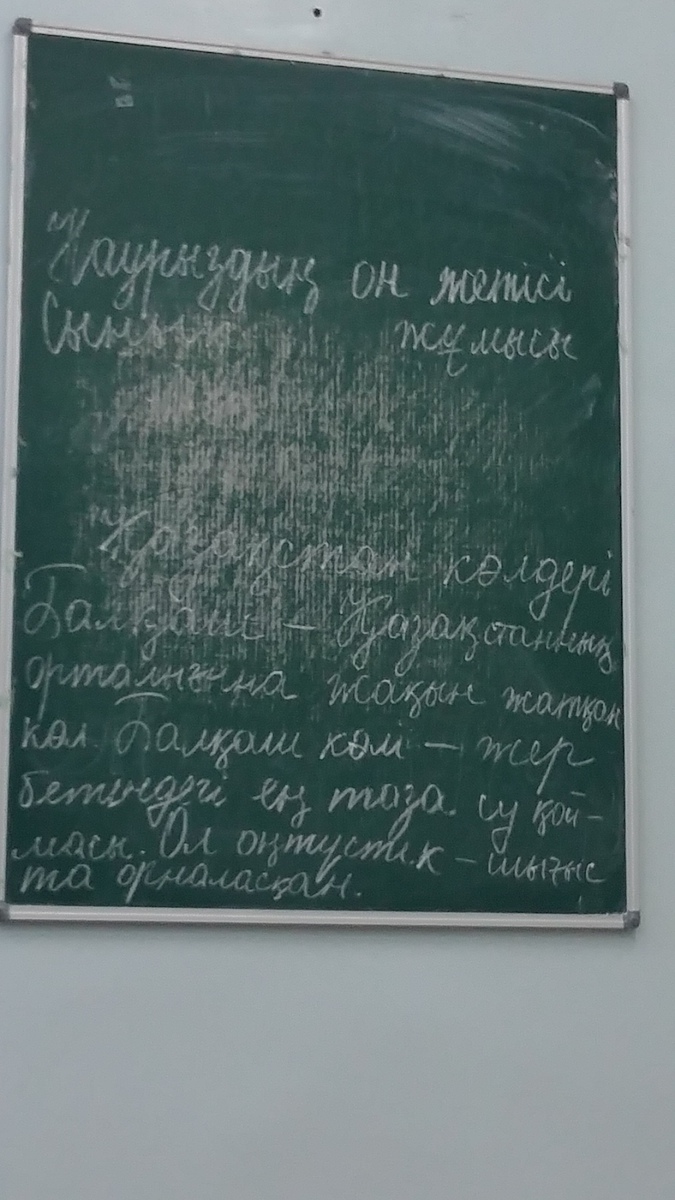 Наурыздың он жетісі
Сынып жұмысы
Қазақстан көлдері
Балқаш – Қазақстанның
орталығына жақын жатқан
көл. Балқаш көлі – жер
бетіндегі ең таза су қой-
масы. Ол оңтүстік – шығыс
та орналасқан.